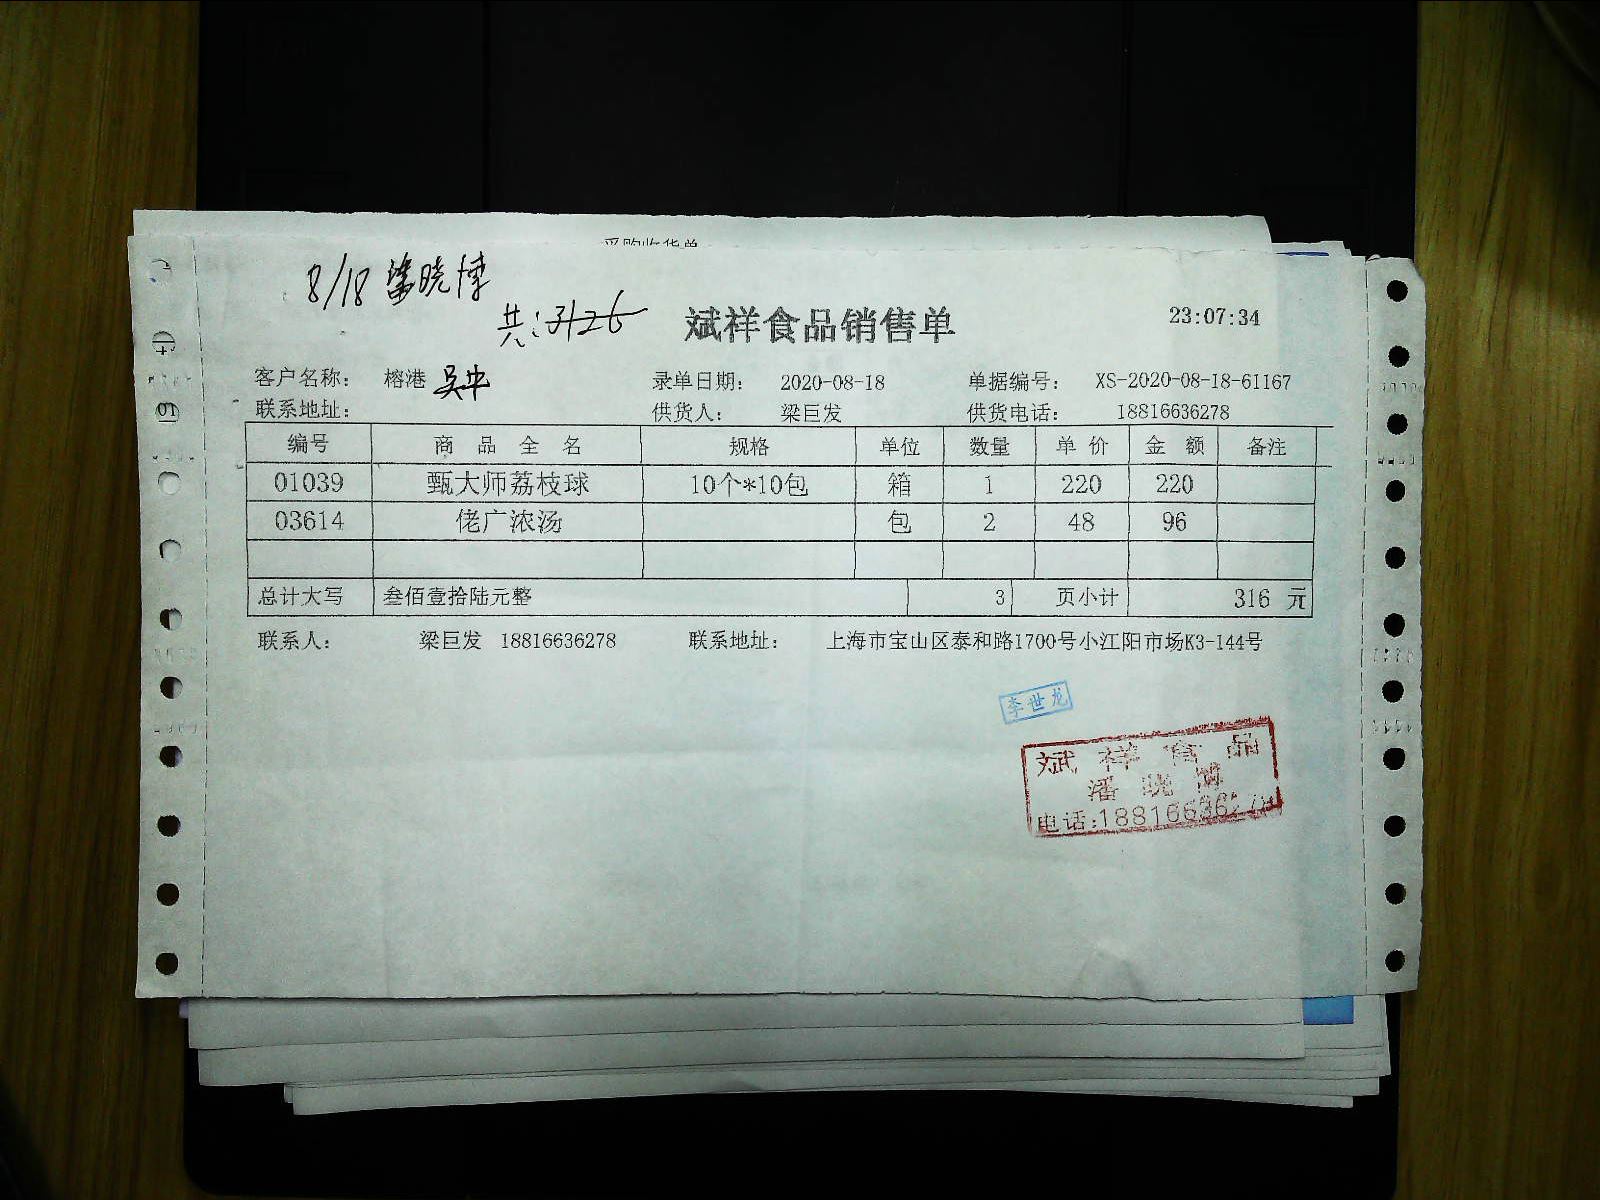 采购收货单
8/18 潘晓博
共:3126
斌祥食品销售单
23:07:34
客户名称: 榕港 吴中 录单日期: 2020-08-18 单据编号: XS-2020-08-18-61167
联系地址: 供货人: 梁巨发 供货电话: 18816636278
编号 商品全名 规格 单位 数量 单价 金额 备注
01039 甄大师荔枝球 10个*10包 箱 1 220 220
03614 佬广浓汤 包 2 48 96
总计大写 叁佰壹拾陆元整 3 页小计 316 元
联系人: 梁巨发 18816636278 联系地址: 上海市宝山区泰和路1700号小江阳市场K3-144号
李世龙
斌祥食品
潘晓博
电话:188166362